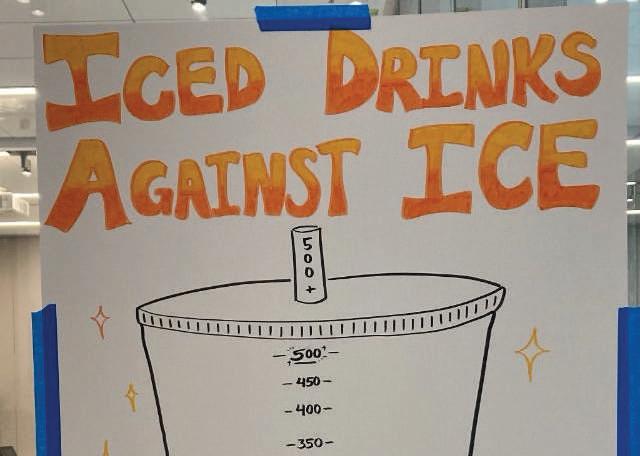 ICED DRINKS
AGAINST ICE
500+
500
450
400
350